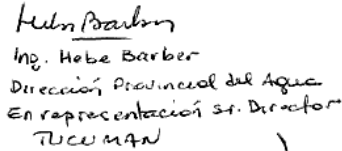 Hebe Barber
Ing. Hebe Barber
Dirección Provincial del Agua
En representación sr. Director
TUCUMAN